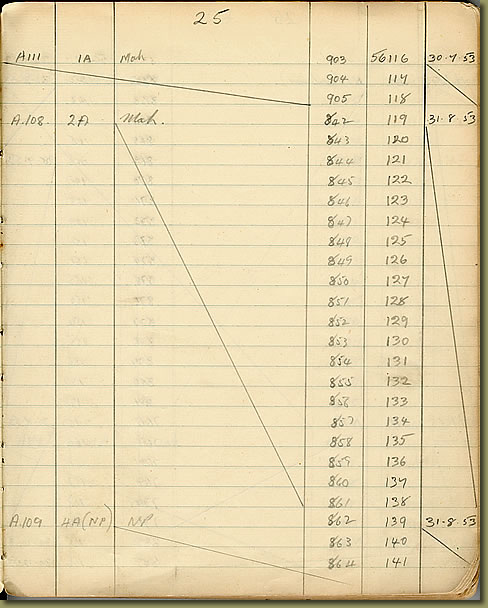 25
A111 1A Mah. 903 56116 30.7.53
904 117
905 118
A.108 2A Mah. 842 119 31.8.53
843 120
844 121
845 122
846 123
847 124
848 125
849 126
850 127
851 128
852 129
853 130
854 131
855 132
856 133
857 134
858 135
859 136
860 137
861 138
A.109 4A(NP) NP 862 139 31.8.53
863 140
864 141